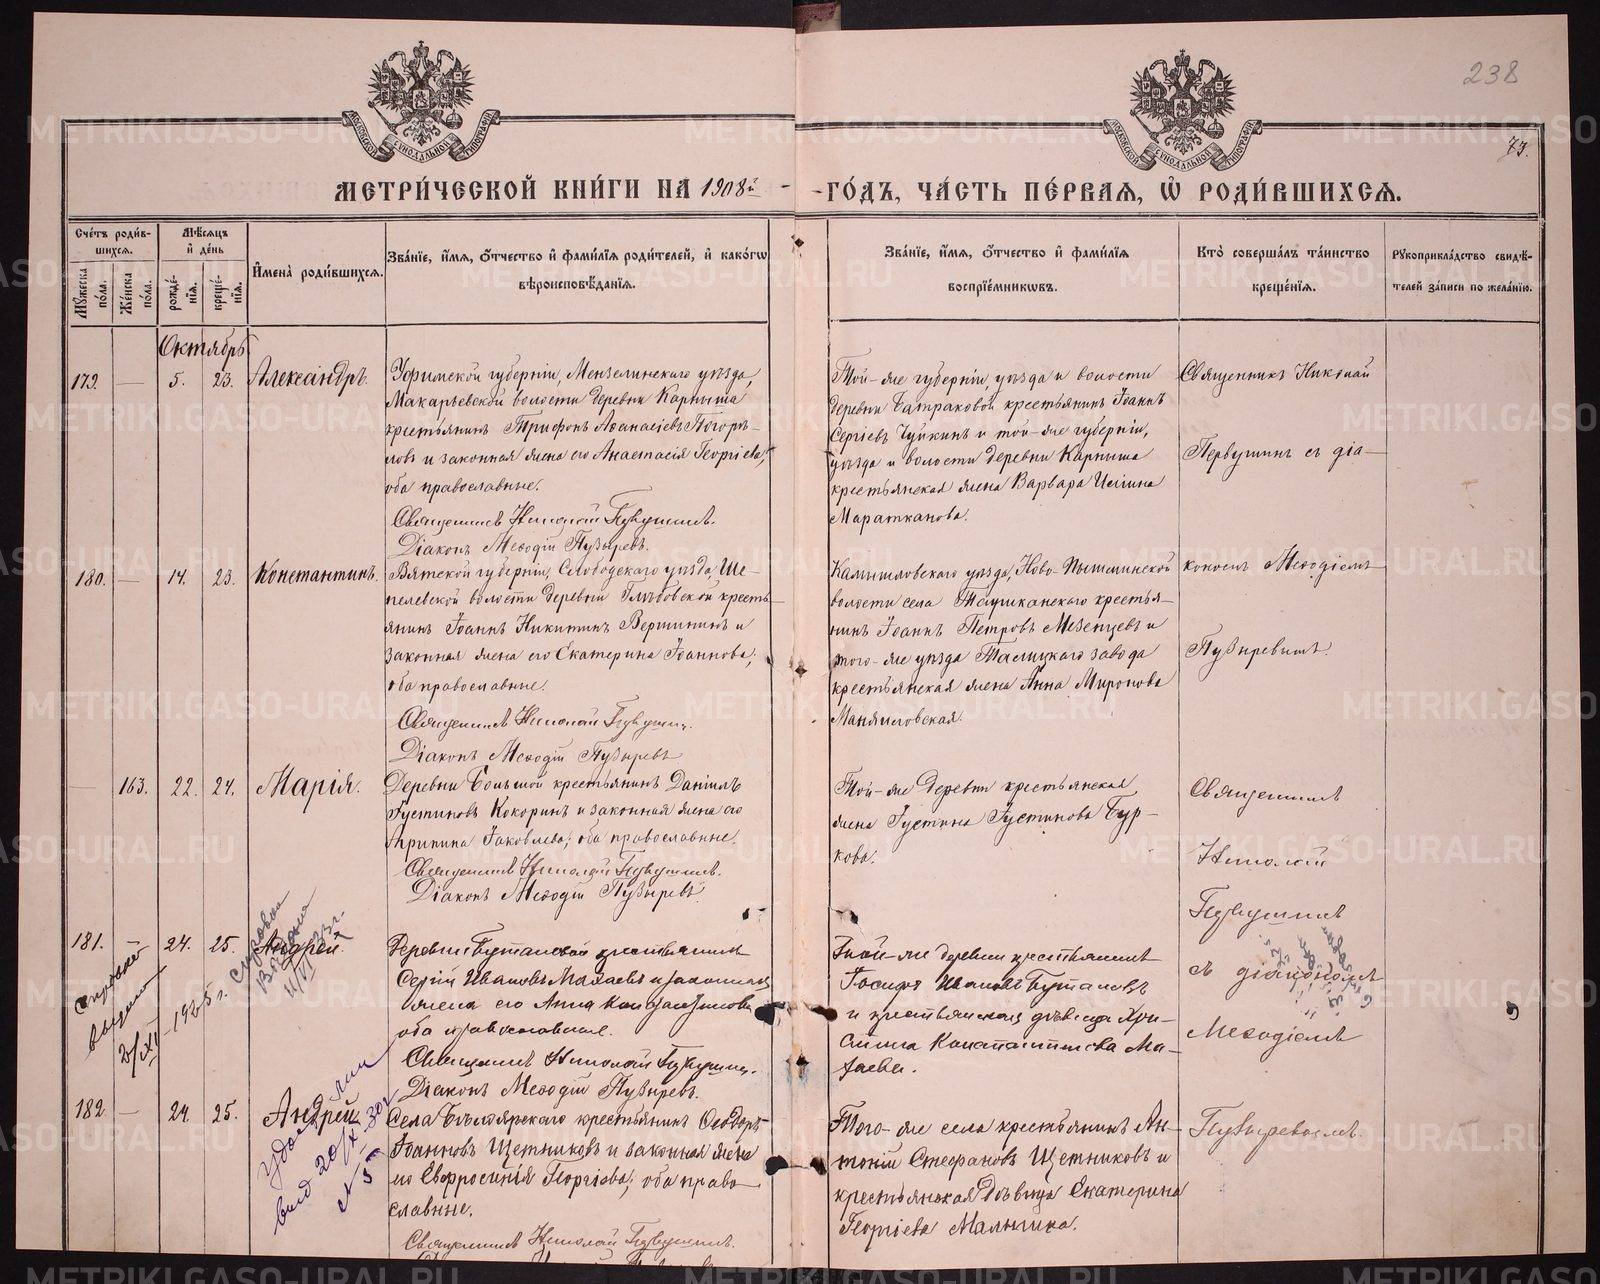 238
73.
МОСКОВСКОЙ СѴНОДАЛЬНОЙ ТИПОГРАФІИ
МОСКОВСКОЙ СѴНОДАЛЬНОЙ ТИПОГРАФІИ
МЕТРИ́ЧЕСКОЙ КНИ́ГИ НА 1908й
ГО́ДЪ, ЧА́СТЬ ПЕ́РВАЯ, Ѡ҆ РОДИ́ВШИХСЯ.
Сче́тъ роди́в-
шихся.
Мꙋ́жеска по́ла.
Же́нска по́ла.
Мѣ́сяцъ
и҆ де́нь
рожде́-
нїя.
креще́-
нїя.
И҆мена̀ роди́вшихся.
Зва́нїе, и҆́мя, ѻ҆́тчество и҆ фами́лїя роди́телей, и҆ како́гѡ
вѣроисповѣ́данїя.
Зва́нїе, и҆́мя, ѻ҆́тчество и҆ фами́лїя
воспрїе́мниковъ.
Кто̀ соверша́лъ та́инство
креще́нїя.
Рꙋкоприкла́дство свидѣ́-
телей за́писи по жела́нїю.
Октябрь
179. — 5. 23. Александръ.
Уфимской губерніи, Мензелинскаго уѣзда,
Макарьевской волости деревни Карпыша
крестьянинъ Трифонъ Аѳанасіевъ Погорѣ-
ловъ и законная жена его Анастасія Георгіева,
оба православные.
Священникъ Николай Первушинъ.
Діаконъ Меѳодій Пузыревъ.
Той-же губерніи, уѣзда и волости
деревни Батраковой крестьянинъ Іоаннъ
Сергіевъ Чуйкинъ и той-же губерніи,
уѣзда и волости деревни Карпыша
крестьянская жена Варвара Иліина
Маратканова.
Священникъ Николай
Первушинъ съ діа-
180. — 14. 23. Константинъ.
Вятской губерніи, Слободскаго уѣзда, Ше-
пелевской волости деревни Глѣбовской кресть-
янинъ Іоаннъ Никитинъ Вершининъ и
законная жена его Екатерина Іоаннова,
оба православные.
Священникъ Николай Первушинъ.
Діаконъ Меѳодій Пузыревъ
Камышловскаго уѣзда, Ново-Пышминской
волости села крестья-
нинъ Іоаннъ Петровъ Мезенцевъ и
того-же уѣзда Талицкаго завода
крестьянская жена Анна Миронова
Маняиловская.
кономъ Меѳодіемъ
Пузыревымъ.
— 163. 22. 24. Марія.
Деревни Большой крестьянинъ Даніилъ
Іустиновъ Кокоринъ и законная жена его
Агрипина Іаковлева; оба православные.
Священникъ Николай Первушинъ.
Діаконъ Меѳодій Пузыревъ.
Той-же деревни крестьянская
жена Іустина Іустинова Бур-
кова.
Священникъ
Николай
Первушинъ
181. — 24. 25. Андрей
Деревни Бутаковой крестьянинъ
Сергій Ивановъ и законная
жена его Анна
оба православные.
Священникъ Николай Первушинъ.
Діаконъ Меѳодій Пузыревъ.
Той-же деревни крестьянинъ
Іосифъ Ивановъ Бутаковъ
и крестьянская дѣвица Хри-
стина Константинова Ма-
съ діакономъ
Меѳодіемъ
справка
выдана
1925 г.
182. — 24. 25. Андрей
Села крестьянинъ Ѳеодоръ
Іоанновъ Щетниковъ и законная жена
его Евфросинія Георгіева; оба право-
славные.
Священникъ Николай Первушинъ.
Того-же села крестьянинъ Ан-
тоній Стефановъ Щетниковъ и
крестьянская дѣвица Екатерина
Георгіева Малыгина.
Пузыревымъ.
METRIKI.GASO-URAL.RU